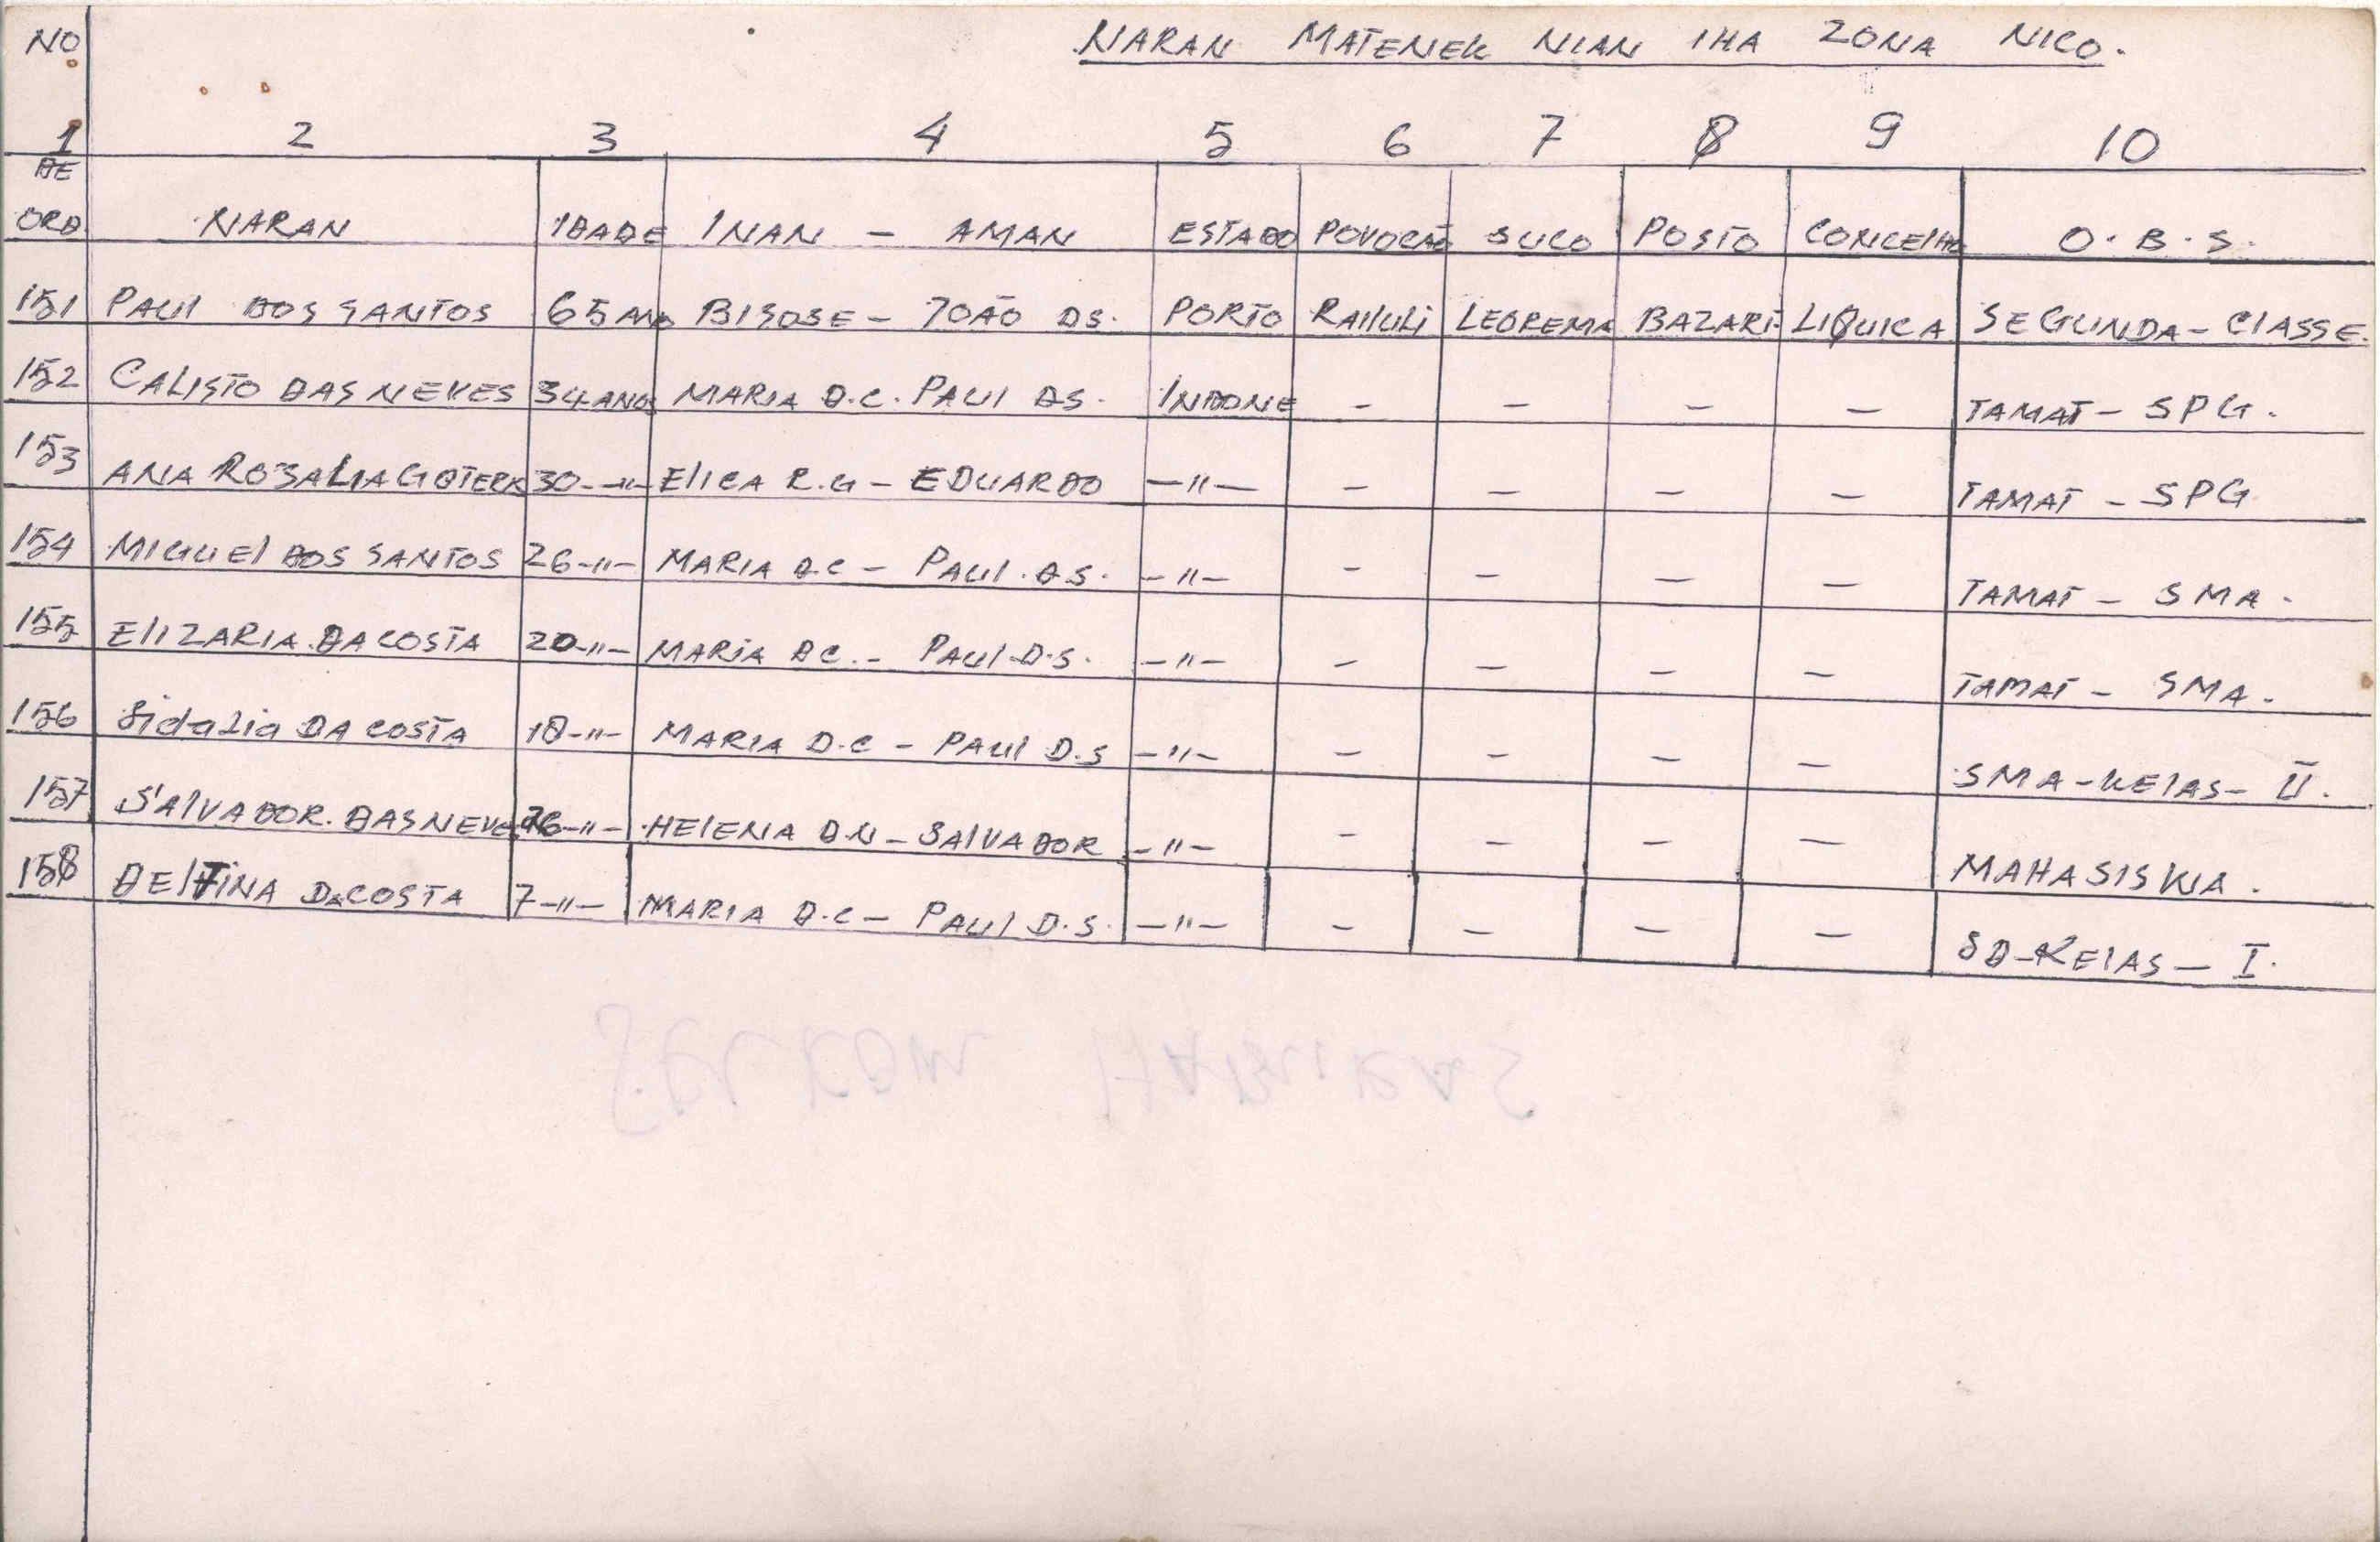 NO NARAN MATENEK NIAN IHA ZONA NICO.
1 2 3 4 5 6 7 8 9 10
DE
ORD NARAN IDADE INAN - AMAN ESTADO POVOCÃO SUCO POSTO CONCELHO O.B.S.
151 PAUl DOS SANTOS 65 ANO BISOSE - JOÃO DS. PORTO RAIlULI LEOREMA BAZART LIQUICA SEGUNDA - ClASSE.
152 CALISTO DAS NEVES 34 ANOS MARIA D.C. PAUl DS. INDONE - - - - TAMAT - SPG.
153 ANA ROSALIA GOTERR 30 -"- ElICA R.G - EDUARDO -"- - - - - TAMAT - SPG
154 MIGUEl DOS SANTOS 26 -"- MARIA D.C - PAUl. DS. -"- - - - - TAMAT - SMA.
155 ElIZARIA. DA COSTA 20 -"- MARIA DC. - PAUl D.S. -"- - - - - TAMAT - SMA.
156 Sidalia DA COSTA 18 -"- MARIA D.C - PAUl D.S -"- - - - - SMA - KElAS - II.
157 SAlVADOR. DAS NEVES -"- HElENA D.N - SAlVADOR -"- - - - - MAHASISWA.
158 DElFINA DA COSTA 7 -"- MARIA D.C - PAUl D.S. -"- - - - - SD - KElAS - I.